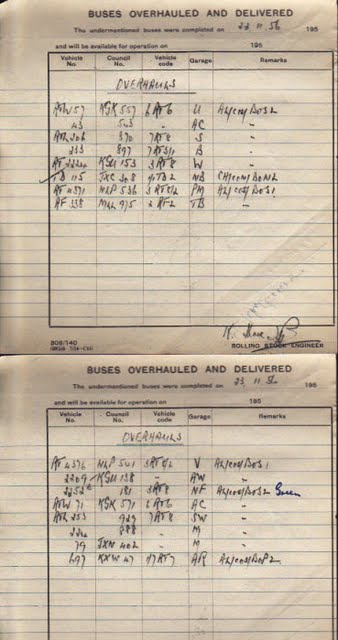 BUSES OVERHAULED AND DELIVERED
The undermentioned buses were completed on 22. 11. 56 195
and will be available for operation on 195
Vehicle No. Council No. Vehicle code Garage Remarks
OVERHAULS
RTW 57 KGK 557 6RT6 U AL/COY/BOS2
43 543 " AC "
RTL 306 370 7RT8 S "
333 897 B "
KGU 153 3RT8 W "
TD 115 JXC 308 4TD2 NB
RT 4371 NLP 536 PM AL/COY/BOS1
RF 338 MLL 975 2RF2 TB "
ROLLING STOCK ENGINEER
808/140
BUSES OVERHAULED AND DELIVERED
The undermentioned buses were completed on 23. 11. 56 195
and will be available for operation on 195
Vehicle No. Council No. Vehicle code Garage Remarks
OVERHAULS
RT 4376 NLP 541 V AL/COY/BOS1
2209 KGU 138 " AW "
2252 181 3RT8 NF AL/COY/BOS2 Green
RTW 71 KGK 571 6RT6 AC "
RTL 253 929 7RT8 SW "
" M "
79 JXN 402 " M "
KXW 47 AR